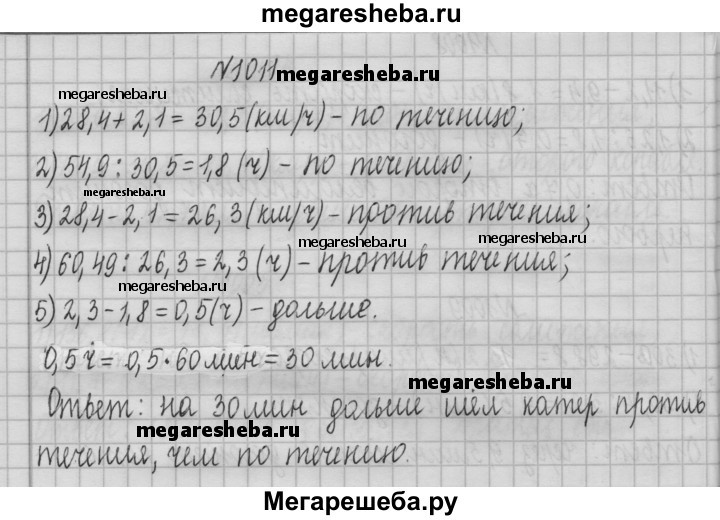 megaresheba.ru
№1011 megaresheba.ru
megaresheba.ru
1) 28,4 + 2,1 = 30,5 (км/ч) - по течению;
2) 54,9 : 30,5 = 1,8 (ч) - по течению;
megaresheba.ru
3) 28,4 - 2,1 = 26,3 (км/ч) - против течения;
megaresheba.ru
4) 60,49 : 26,3 = 2,3 (ч) - против течения;
megaresheba.ru
5) 2,3 - 1,8 = 0,5 (ч) - дольше.
0,5 ч = 0,5 · 60 мин = 30 мин.
megaresheba.ru
Ответ: на 30 мин дольше шёл катер против
megaresheba.ru
течения, чем по течению.
Мегарешеба.ру